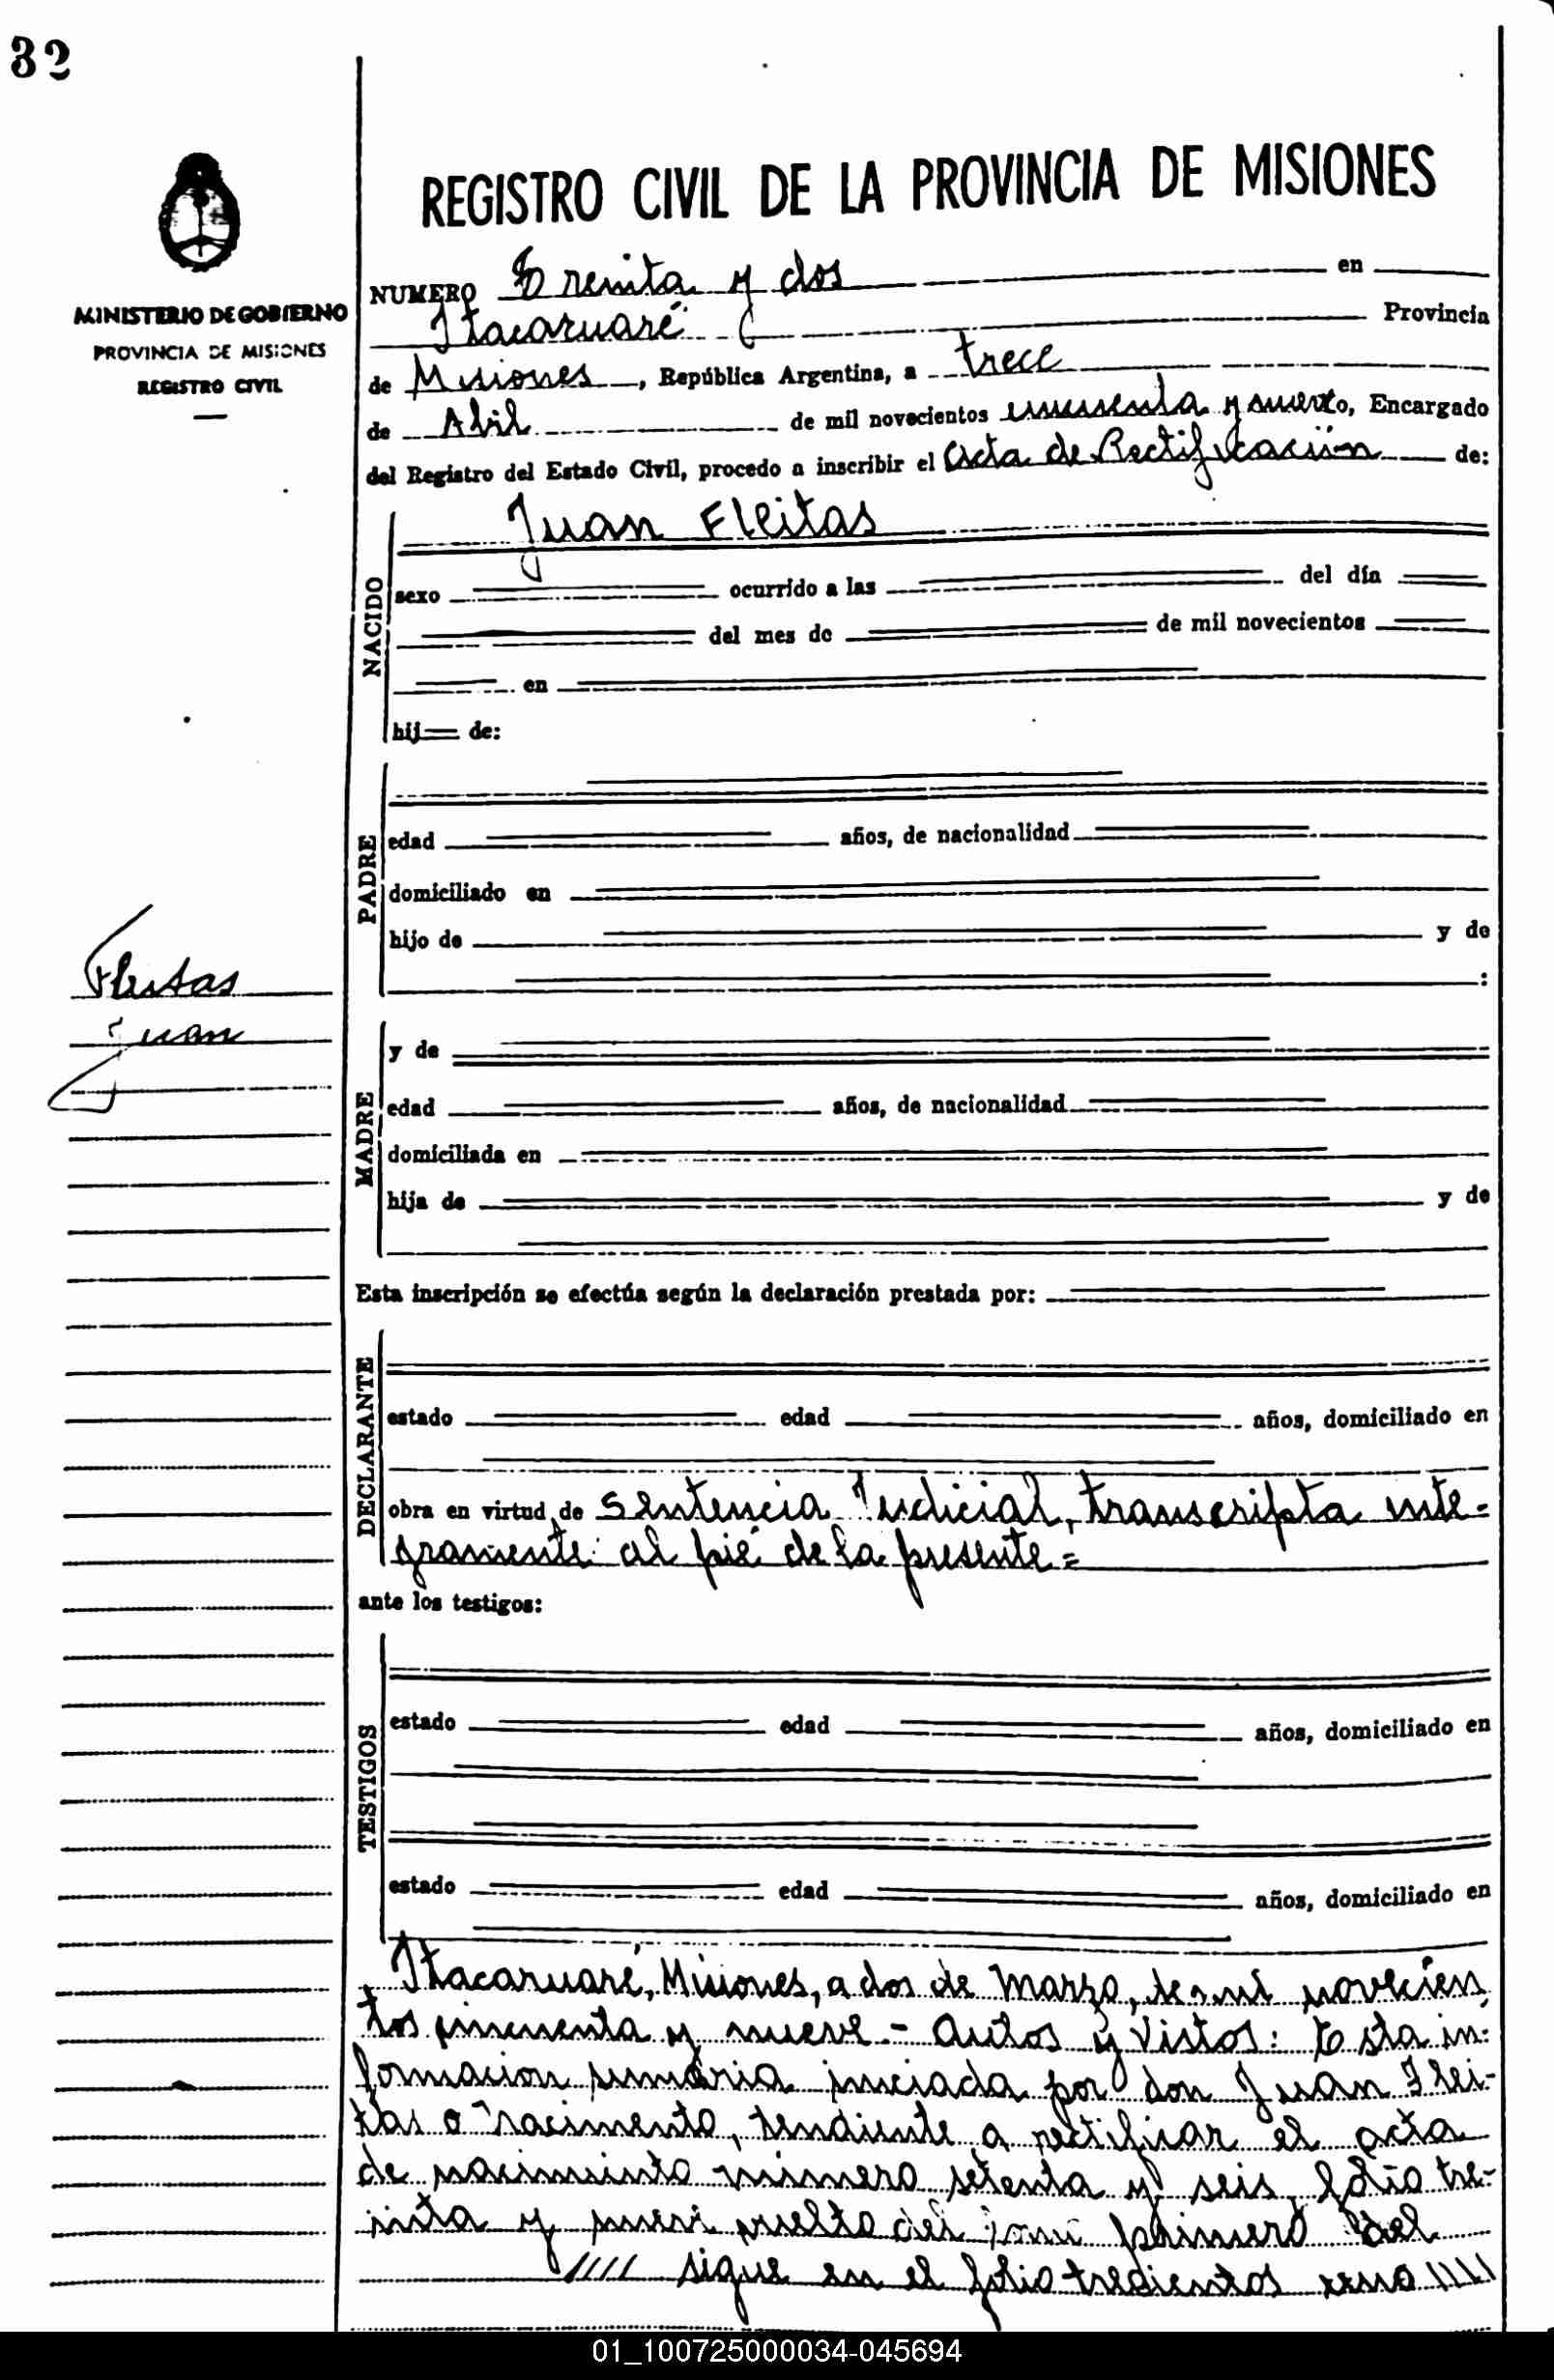 32
REGISTRO CIVIL DE LA PROVINCIA DE MISIONES
MINISTERIO DE GOBIERNO
PROVINCIA DE MISIONES
REGISTRO CIVIL
NUMERO Treinta y dos en
Itacaruaré Provincia
de Misiones, República Argentina, a trece
de Abril de mil novecientos cincuenta y nueve, Encargado
del Registro del Estado Civil, procedo a inscribir el Acta de Rectificación de:
Juan Fleitas
NACIDO
sexo ocurrido a las del día
del mes de de mil novecientos
en
hij de:
PADRE
edad años, de nacionalidad
domiciliado en
hijo de y de
:
Fleitas
Juan
MADRE
y de
edad años, de nacionalidad
domiciliada en
hija de y de
Esta inscripción se efectúa según la declaración prestada por:
DECLARANTE
estado edad años, domiciliado en
obra en virtud de Sentencia Judicial, transcripta inte=
gramente al pié de la presente=
ante los testigos:
TESTIGOS
estado edad años, domiciliado en
estado edad años, domiciliado en
Itacaruaré, Misiones, a dos de Marzo, de mil novecien
tos cincuenta y nueve.- Autos y Vistos: Esta in-
formacion sumaria iniciada por don Juan Flei-
tas o Nacimento, tendiente a rectificar el acta
de nacimiento número setenta y seis, folio tre-
inta y nueve vuelto del tomo primero del
//// sigue en el folio trecientos uno ////
01_100725000034-045694